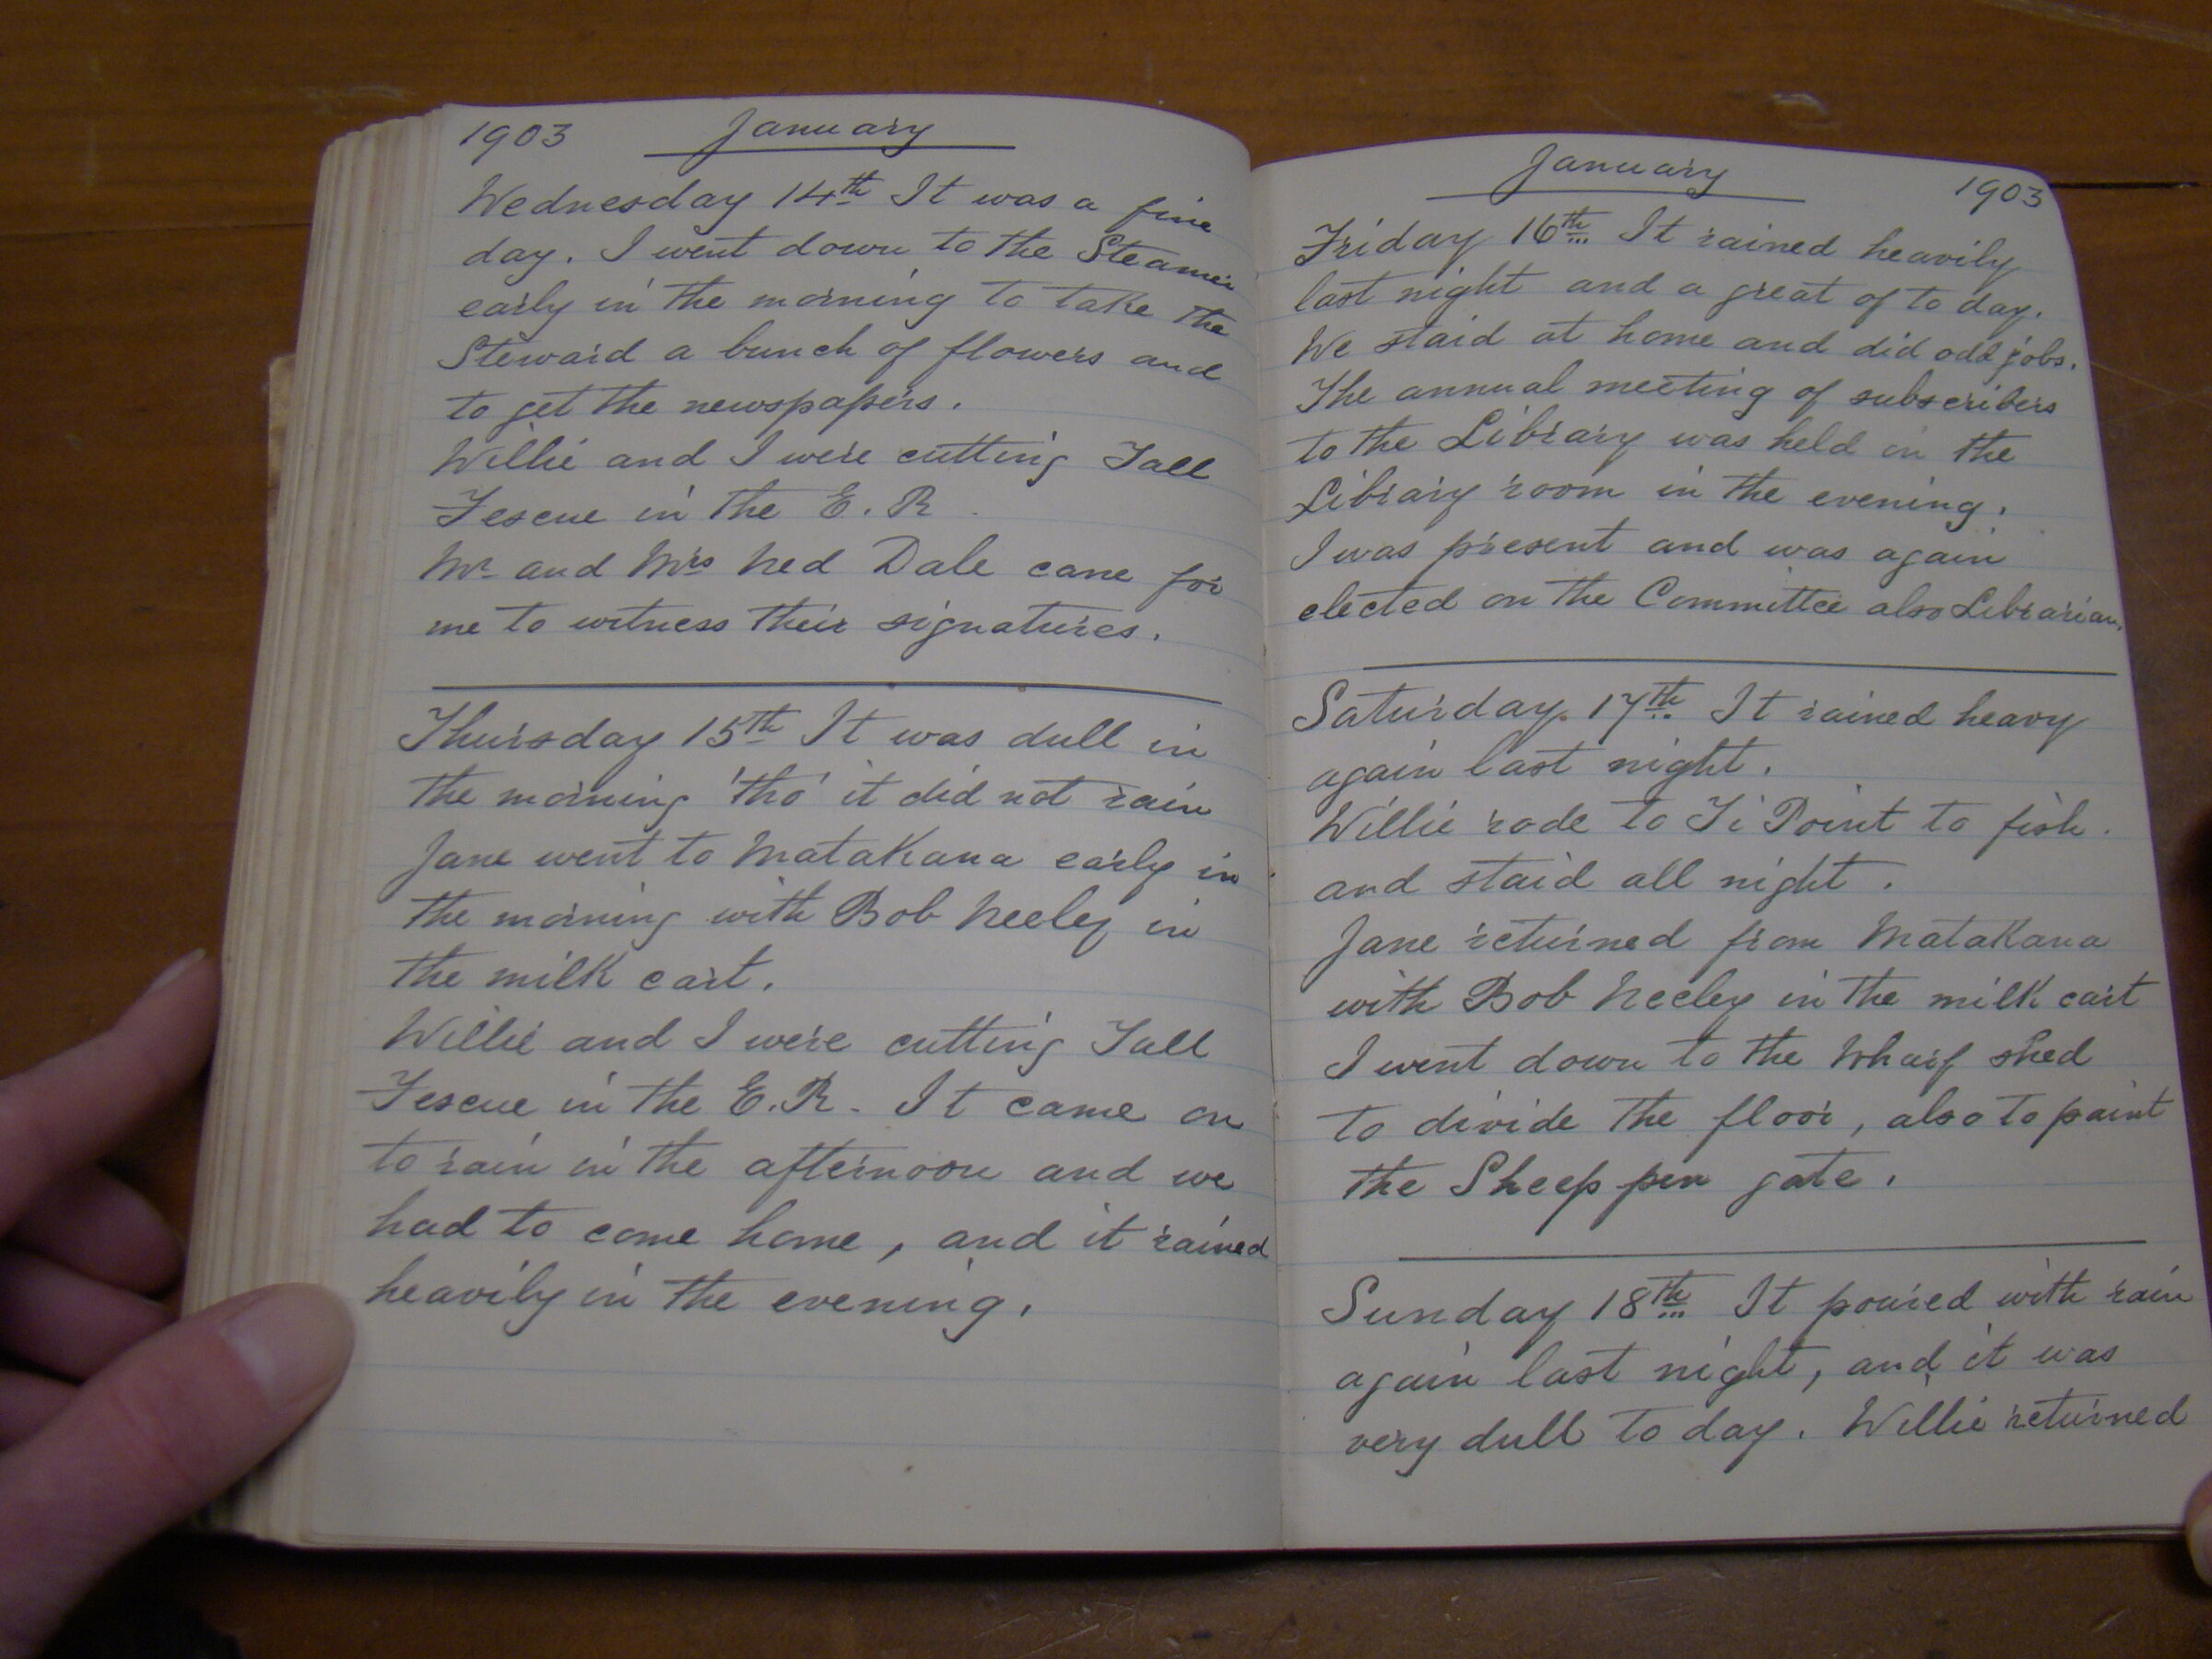 1903 January
Wednesday 14th It was a fine
day. I went down to the Steamer
early in the morning to take the
Steward a bunch of flowers and
to get the newspapers.
Willie and I were cutting Tall
Fescue in the E. R.
Mr and Mrs Ned Dale cane for
me to witness their signatures.
Thursday 15th It was dull in
the morning 'tho' it did not rain
Jane went to Matakana early in
the morning with Bob Neeley in
the milk cart.
Willie and I were cutting Tall
Fescue in the E. R. It came on
to rain in the afternoon and we
had to come home, and it rained
heavily in the evening.
January 1903
Friday 16th It rained heavily
last night and a great of to day.
We staid at home and did odd jobs.
The annual meeting of subscribers
to the Library was held in the
Library room in the evening.
I was present and was again
elected on the Committee also Librarian.
Saturday. 17th It rained heavy
again last night.
Willie rode to Ti Point to fish.
and staid all night.
Jane returned from Matakana
with Bob Neeley in the milk cart
I went down to the Wharf shed
to divide the floor, also to paint
the Sheep pen gate.
Sunday 18th It poured with rain
again last night, and it was
very dull to day. Willie returned